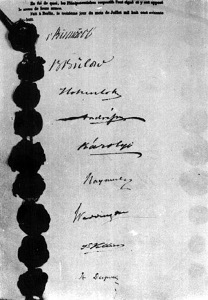 En foi de quoi, les Plénipotentiaires respectifs l'ont signé et y ont apposé
le sceau de leurs armes.
Fait à Berlin, le treizième jour du mois de Juillet mil huit cent
v Bismarck
B Bülow
Hohenlohe
Andrássy
Károlyi
Haymerle
Waddington